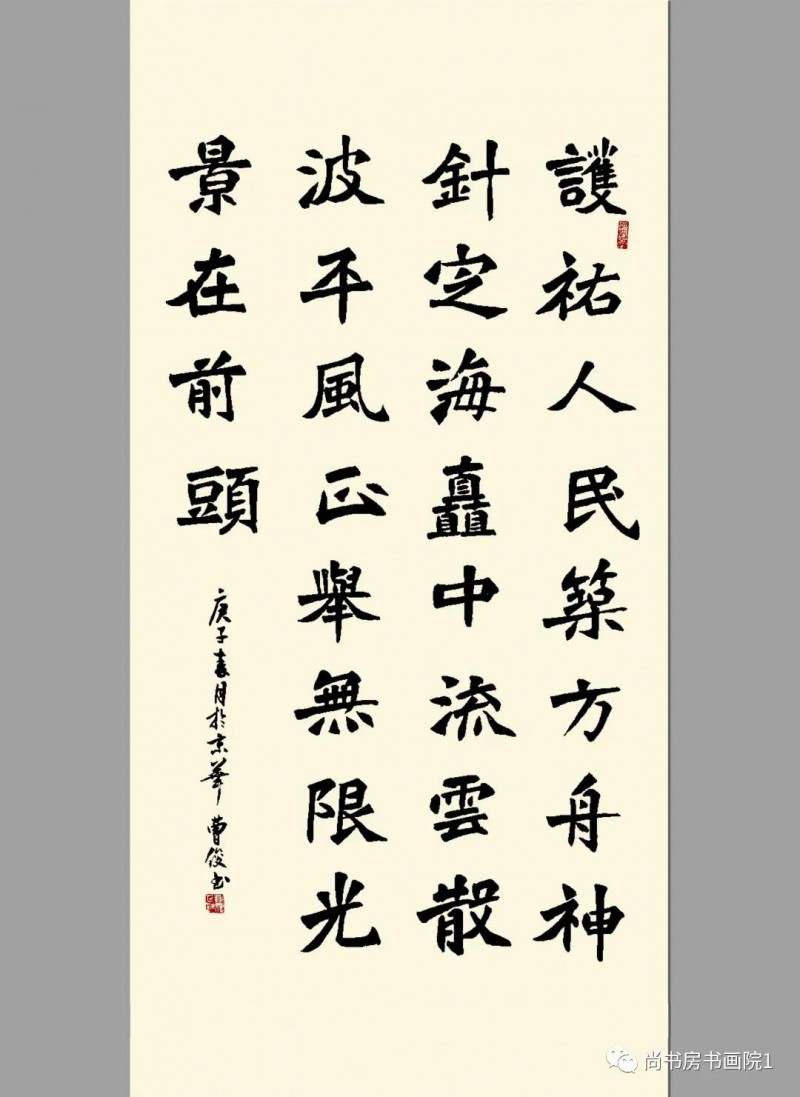 護祐人民築方舟神
針定海矗中流雲散
波平風正舉無限光
景在前頭
庚子春月於京華 曹俊书
尚书房书画院1